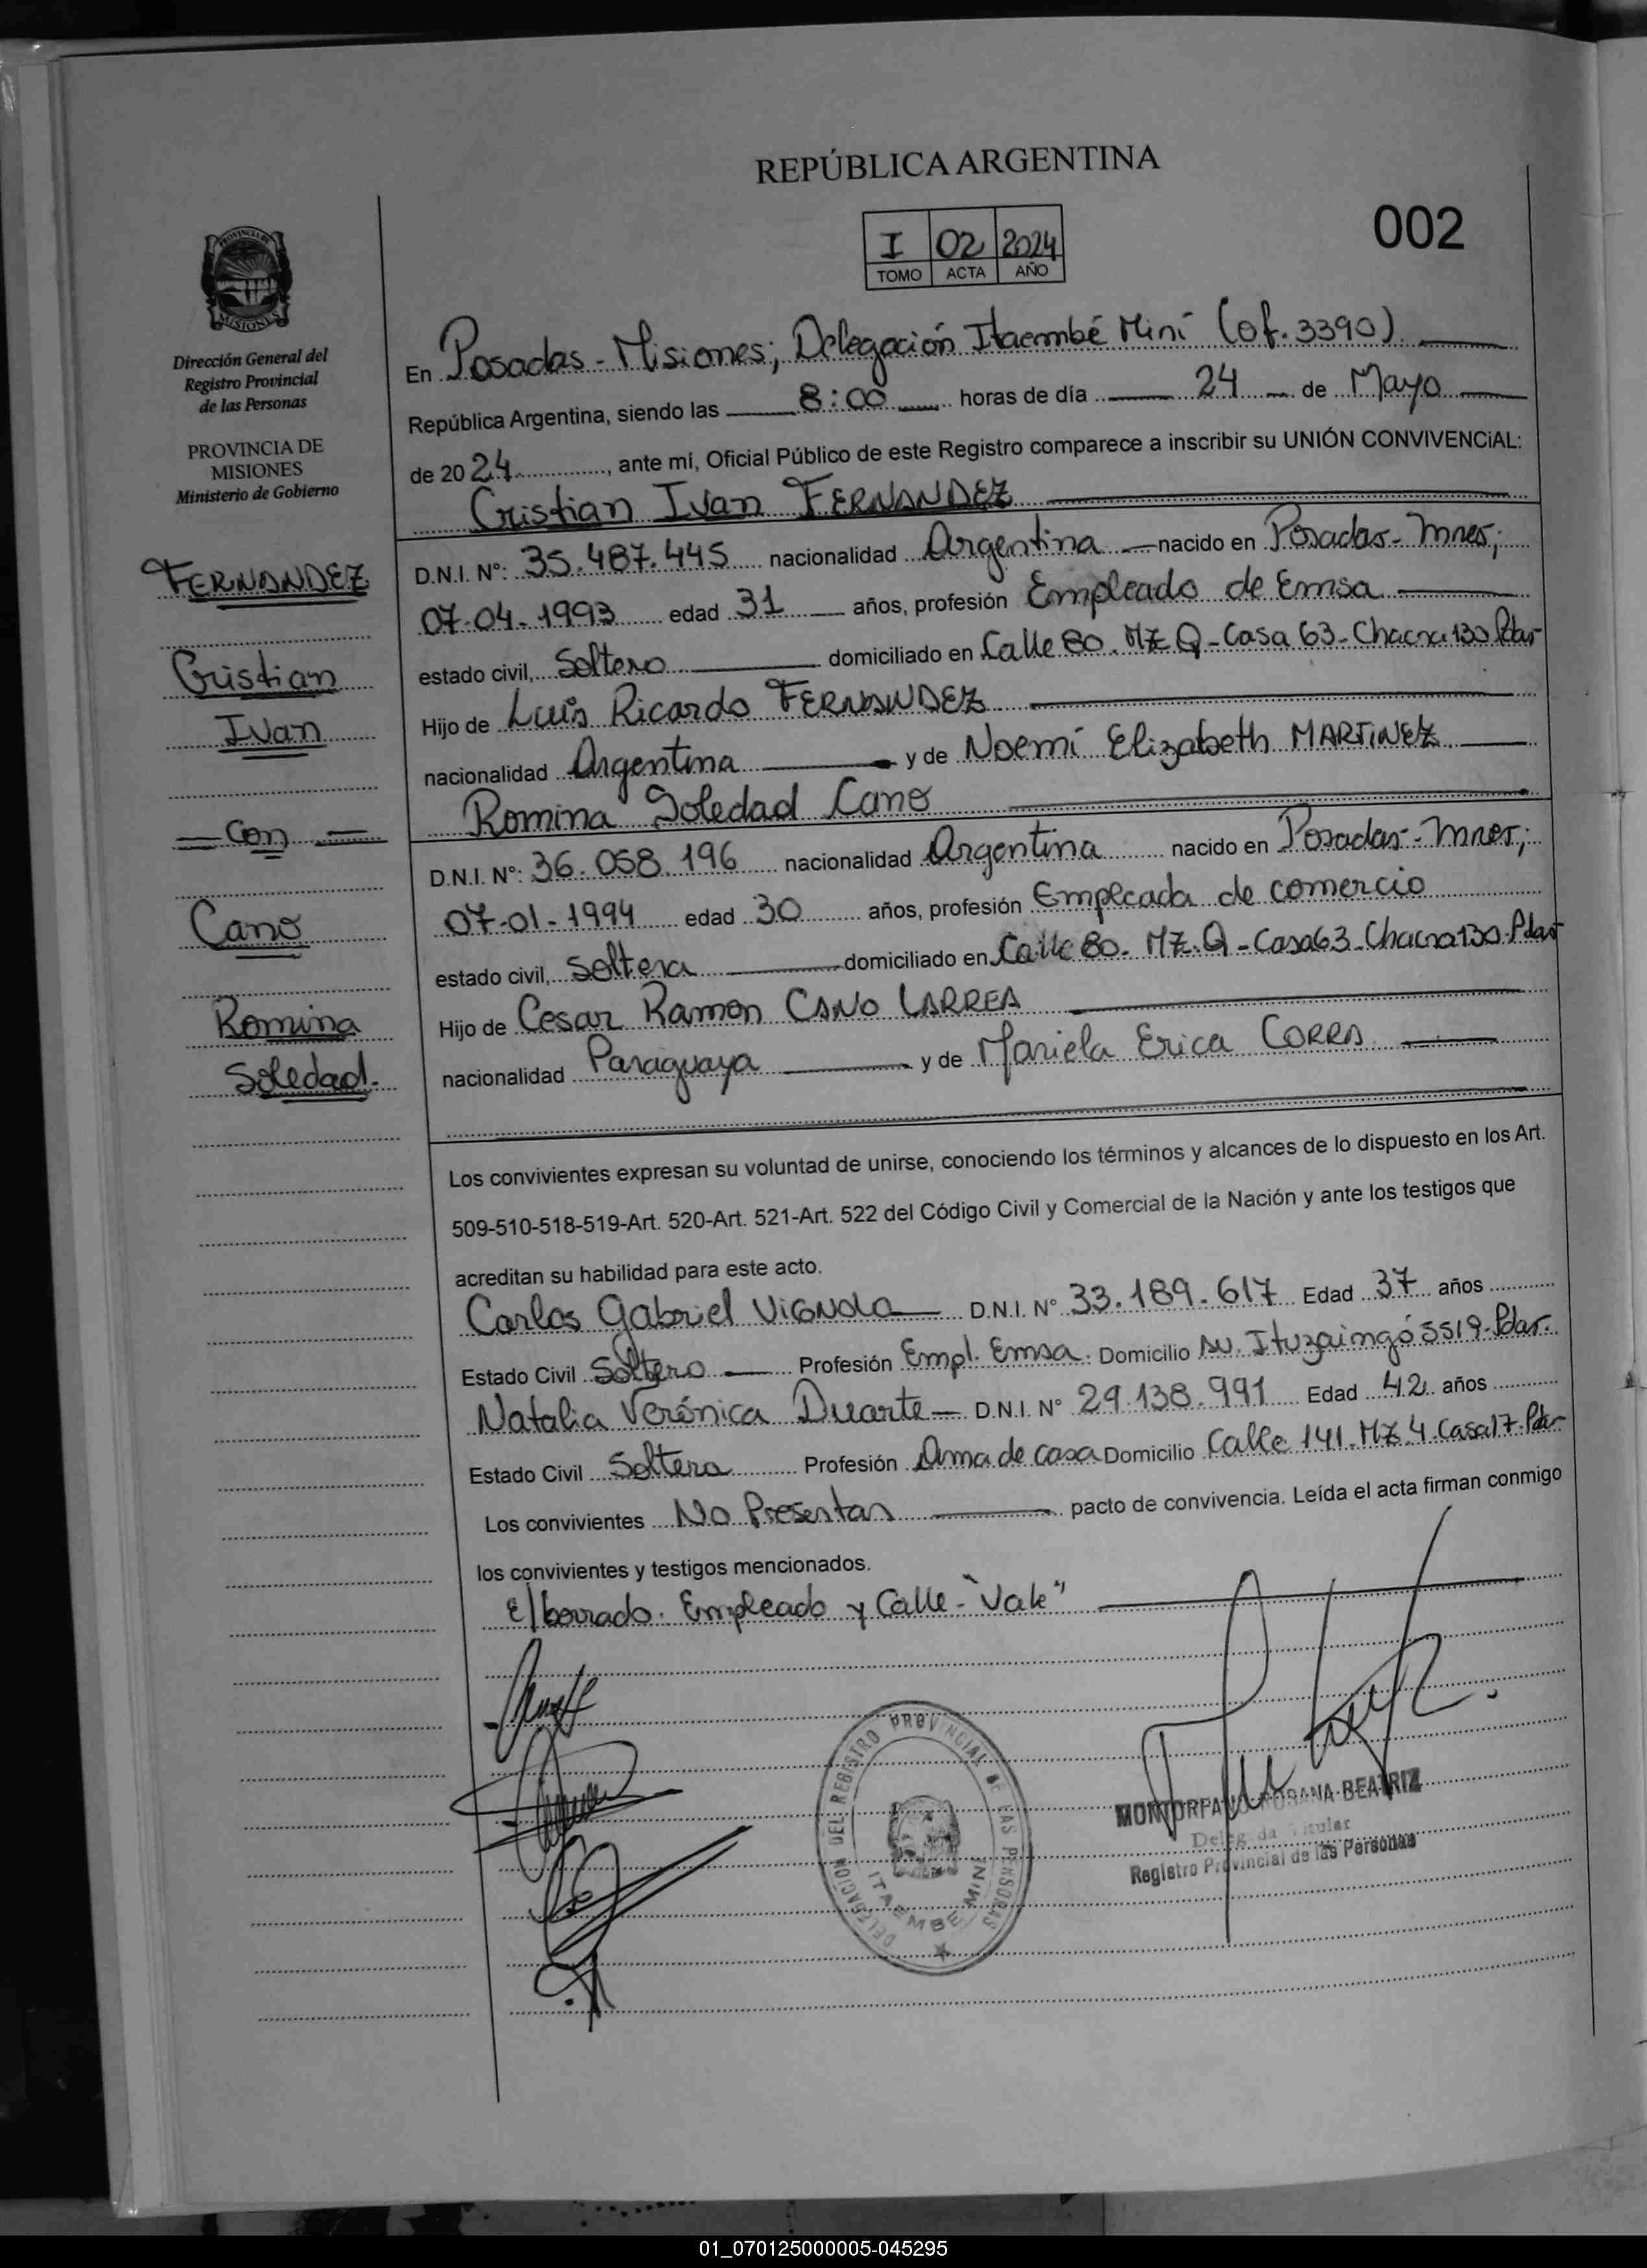 REPÚBLICA ARGENTINA
002
I 02 2024
TOMO ACTA AÑO
PROVINCIA DE
MISIONES
Dirección General del
Registro Provincial
de las Personas
PROVINCIA DE
MISIONES
Ministerio de Gobierno
FERNANDEZ
Cristian
Ivan
Con
Cano
Romina
Soledad.
En Posadas - Misiones; Delegación Itaembé Miní (of. 3390)
República Argentina, siendo las 8:00 horas de día 24 de Mayo
de 2024, ante mí, Oficial Público de este Registro comparece a inscribir su UNIÓN CONVIVENCiAL:
Cristian Ivan FERNANDEZ
D.N.I. N°: 35.487.445 nacionalidad Argentina nacido en Posadas - Mnes;
07-04-1993 edad 31 años, profesión Empleado de Emsa
estado civil, Soltero domiciliado en Calle 80. MZ Q - Casa 63 - Chacra 130 Pdas
Hijo de Luis Ricardo FERNANDEZ
nacionalidad Argentina y de Noemí Elizabeth MARTiNEZ
Romina Soledad Cano
D.N.I. N°: 36.058.196 nacionalidad Argentina nacido en Posadas - Mnes;
07-01-1994 edad 30 años, profesión Empleada de comercio
estado civil, Soltera domiciliado en Calle 80. MZ. Q - Casa 63 - Chacra 130 - Pdas
Hijo de Cesar Ramon CANO LARREA
nacionalidad Paraguaya y de Mariela Erica CORRA
Los convivientes expresan su voluntad de unirse, conociendo los términos y alcances de lo dispuesto en los Art.
509-510-518-519-Art. 520-Art. 521-Art. 522 del Código Civil y Comercial de la Nación y ante los testigos que
acreditan su habilidad para este acto.
Carlos Gabriel ViGNOLA D.N.I. N° 33.189.617 Edad 37 años
Estado Civil Soltero Profesión Empl. Emsa. Domicilio Av. Ituzaingó 5519 - Pdas.
Natalia Verónica Duarte D.N.I. N° 29.138.991 Edad 42 años
Estado Civil Soltera Profesión Ama de casa Domicilio Calle 141. MZ 4. Casa 17. Pdas
Los convivientes No Presentan pacto de convivencia. Leída el acta firman conmigo
los convivientes y testigos mencionados.
E/borrado. Empleado y Calle - "Vale"
DELEGACION DEL REGISTRO PROVINCIAL DE LAS PERSONAS
ITAEMBE MINI
MONTORFANO ROSANA BEATRIZ
Delegada Titular
Registro Provincial de las Personas
01_070125000005-045295